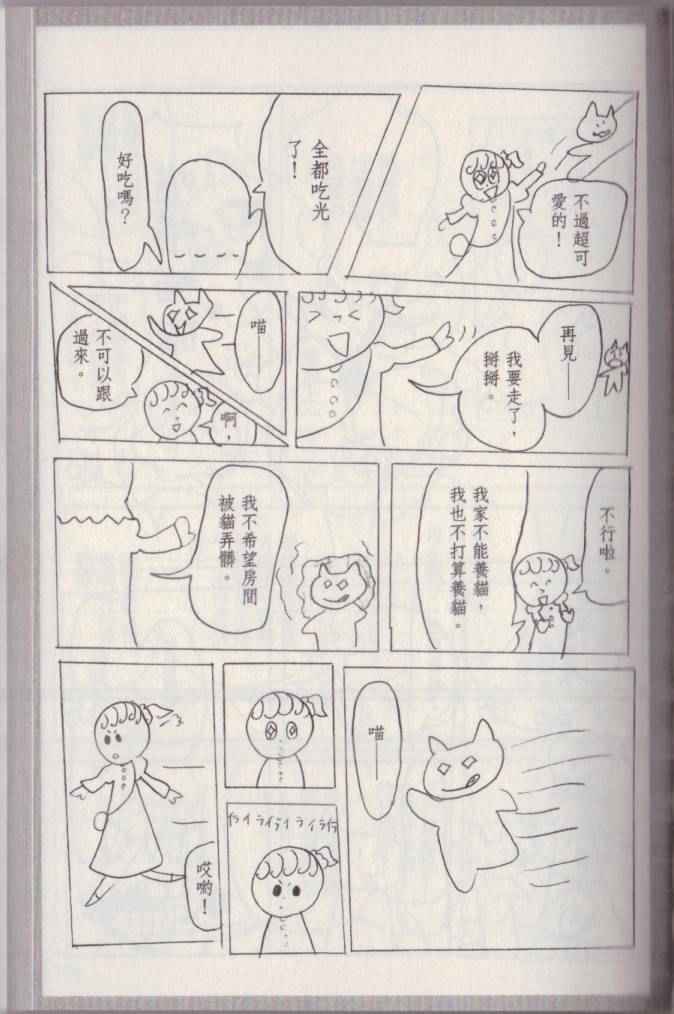 不過超可
愛的！
全都吃光
了！
好吃嗎？
再見——
我要走了，
掰掰。
喵——
啊，
不可以跟
過來。
不行啦。
我家不能養貓，
我也不打算養貓。
我不希望房間
被貓弄髒。
喵——
哎喲！